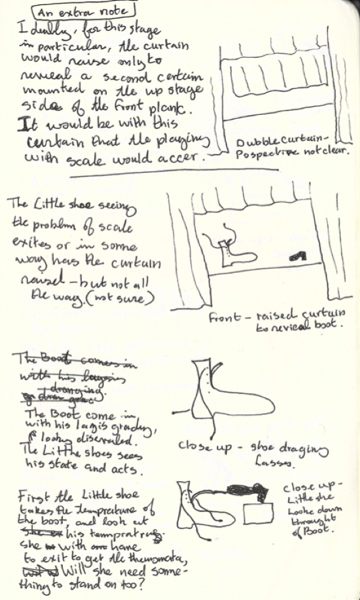 An extra note
Ideally, for this stage
in particular, the curtain
would raise only to
reveal a second certain
mounted on the up stage
side of the front plank.
It would be with this
curtain that the playing
with scale would accer.
Dubble curtain-
Pospective not clear.
The Little shoe seeing
the problem of scale
exites or in some
way has the curtain
raised - but not all
the way (not sure)
Front - raised curtain
to revieal boot.
The Boot comes in
with his
draging
The Boot come in,
with his draging,
& looking discrailed.
The Little shoes sees
his state and acts.
Close up - shoe draging
Lasses.
First the Little shoe
takes the tempreture of
the boot, and look at
his tempratring
she with hane
to exit to get the themomata,
Will she need some-
thing to stand on too?
close up -
Little she
Looke down
throught
of Boot.